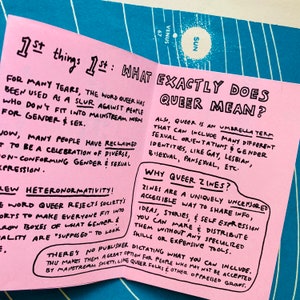 SUN
VENUS
67
1st things 1st: WHAT EXACTLY DOES
QUEER MEAN?
FOR MANY YEARS, THE WORD QUEER HAS
BEEN USED AS A SLUR AGAINST PEOPLE
WHO DON'T FIT INTO MAINSTREAM NORMS
FOR GENDER & SEX.
NOW, MANY PEOPLE HAVE RECLAIMED
IT TO BE A CELEBRATION OF DIVERSE,
NON-CONFORMING GENDER & SEXUAL
EXPRESSION.
SCREW HETERONORMATIVITY!
THE WORD QUEER REJECTS SOCIETY'S
EFFORTS TO MAKE EVERYONE FIT INTO
BOXES OF WHAT GENDER &
SEXUALITY ARE "SUPPOSED" TO LOOK
ALSO, QUEER IS AN UMBRELLA TERM
THAT CAN INCLUDE MANY DIFFERENT
SEXUAL ORIENTATION & GENDER
IDENTITIES, LIKE GAY, LESBIAN,
BISEXUAL, PANSEXUAL, ETC.
WHY QUEER ZINES?
ZINES ARE A UNIQUELY UNCENSORED
ACCESSIBLE WAY TO SHARE INFO,
IDEAS, STORIES, & SELF EXPRESSION
YOU CAN MAKE & DISTRIBUTE
THEM WITHOUT ANY SPECIALIZED
SKILLS OR EXPENSIVE TOOLS.
THERE'S NO PUBLISHER DICTATING WHAT YOU CAN INCLUDE.
THIS MAKES THEM A GREAT OPTION FOR PEOPLE WHO MAY NOT BE ACCEPTED
BY MAINSTREAM SOCIETY, LIKE QUEER FOLKS & OTHER OPPRESSED GROUPS.